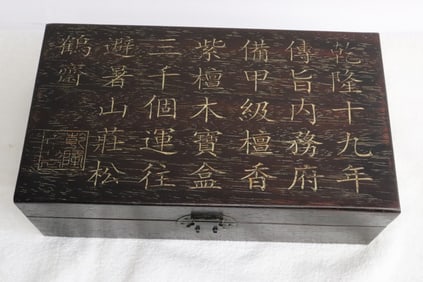 乾隆十九年
傳旨内務府
備甲級檀香
紫檀木寶盒
三千個運往
避暑山莊松
鶴齋